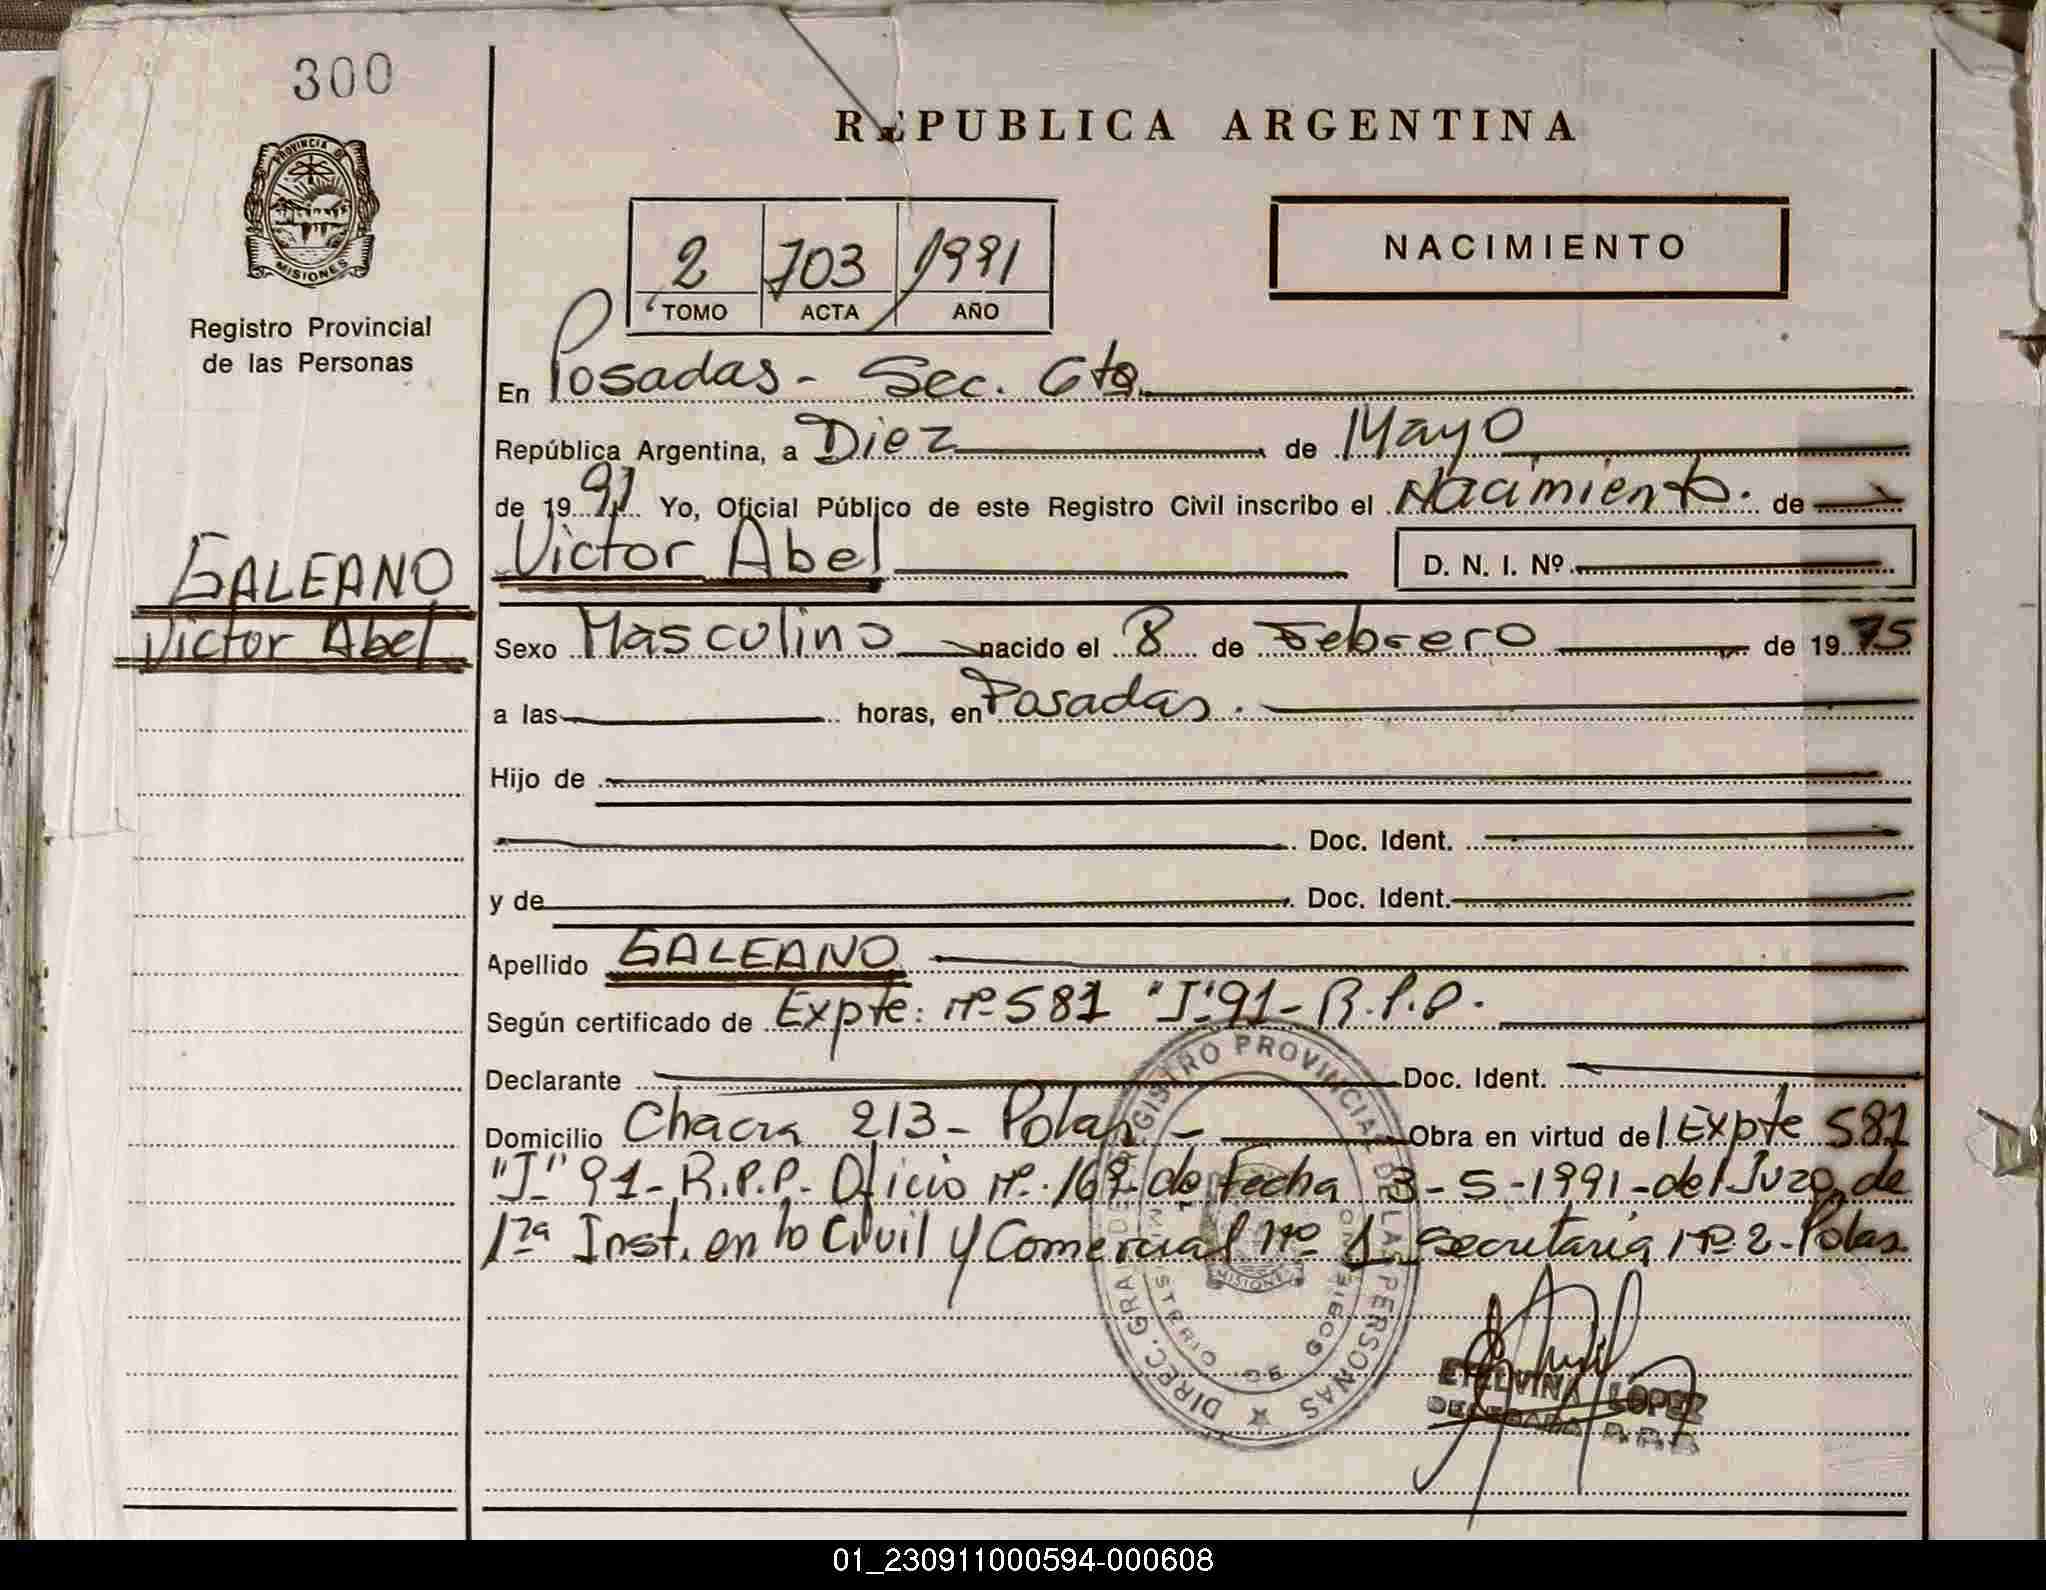 300
REPUBLICA ARGENTINA
PROVINCIA DE
MISIONES
NACIMIENTO
2 703 1991
TOMO ACTA AÑO
Registro Provincial
de las Personas
En Posadas - Sec. 6ta
República Argentina, a Diez de Mayo
de 1991 Yo, Oficial Público de este Registro Civil inscribo el Nacimiento. de
GALEANO
Victor Abel
Victor Abel D. N. I. Nº
Sexo Masculino nacido el 8 de Febrero de 1975
a las horas, en Posadas.
Hijo de
Doc. Ident.
y de Doc. Ident.
Apellido GALEANO
Según certificado de Expte: Nº 581 "J" 91 - R.P.P.
Declarante Doc. Ident.
Domicilio Chacra 213 - Pdas - Obra en virtud del Expte 581
"J" 91 - R.P.P. - Oficio Nº. 169 de Fecha 3 - 5 - 1991 - del Juzg. de
1ra Inst. en lo Civil y Comercial Nº 1 Secretaria Nº 2 - Pdas.
DIREC. GRAL. DE REGISTRO PROVINCIAL DE LAS PERSONAS
MINISTERIO DE GOBIERNO
MISIONES
ETELVINA LOPEZ
DELEGADA R.P.P.
01_230911000594-000608